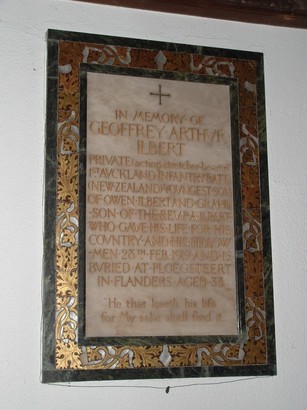 IN MEMORY OF
GEOFFREY ARTHVR
ILBERT
PRIVATE (acting stretcher bearer)
1ST AVCKLAND INFANTRY BATTN
(NEW ZEALAND) YOVNGEST SON
OF OWEN ILBERT AND GRAND
SON OF THE REV P.A. ILBERT
WHO GAVE HIS LIFE FOR HIS
COVNTRY AND HIS FELLOW
MEN 23RD FEB AND IS
BVRIED AT PLOEGSTEERT
IN FLANDERS AGED 33
"He that loseth his life
for My sake shall find it"